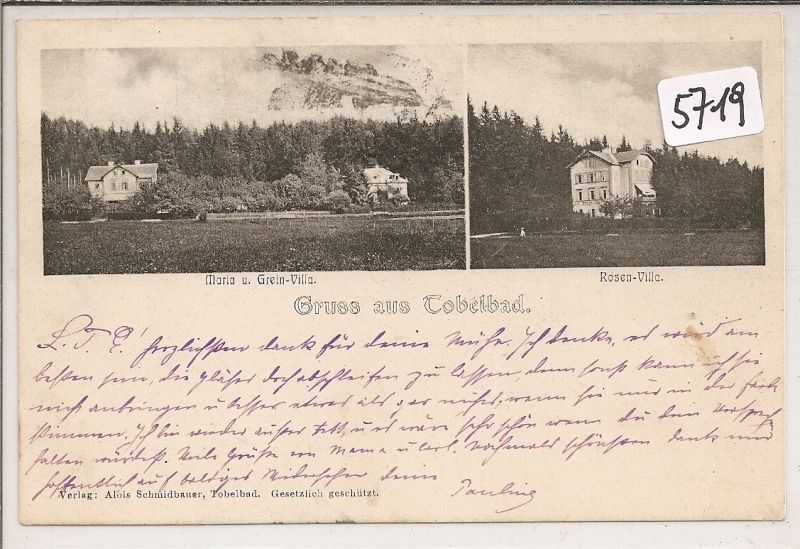 5719
Maria u. Grein-Villa.
Rosen-Villa.
Gruss aus Tobelbad.
L. T. E.! Herzlichsten Dank für deine Mühe. Ich denke, es wird am
besten sein, die Gläser doch abschleifen zu lassen, denn sonst kann ich sie
nicht anbringen u besser etwas als gar nichts, wenn sie nur in der Farbe
stimmen. Ich bin wieder außer Bett, u es wäre sehr schön wenn du dein Versprech
halten würdest. Viele Grüße von Mama u Carl. Nochmals schönsten Dank und
hoffentlich auf baldiges Wiedersehen deine
Pauline
Verlag: Alois Schmidbauer, Tobelbad. Gesetzlich geschützt.